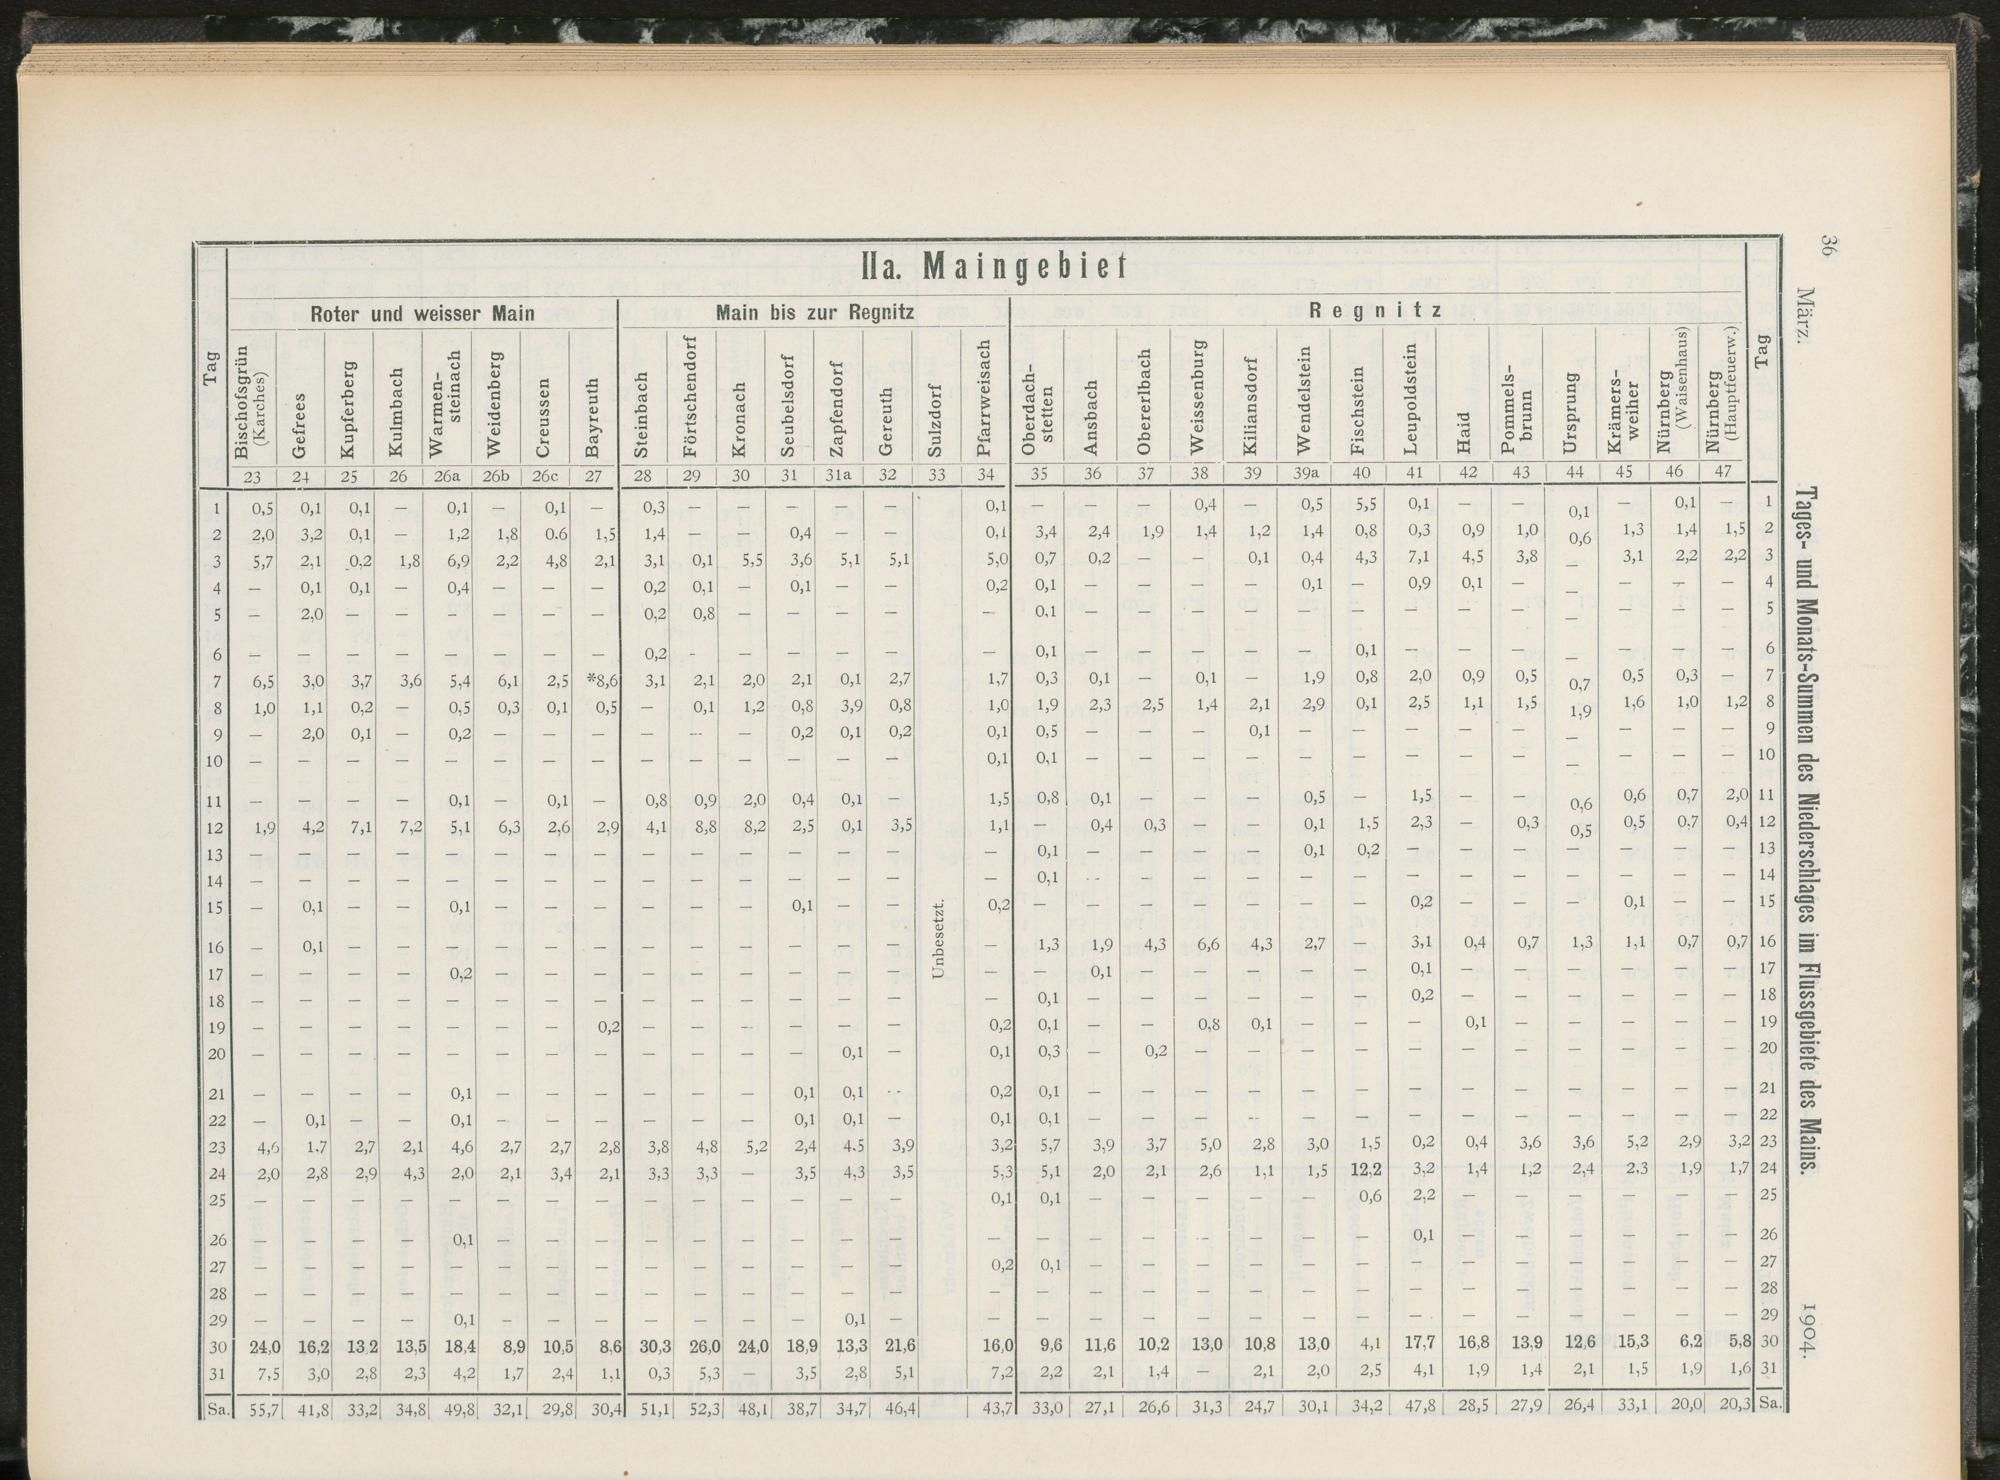 36
März.
Tages- und Monats-Summen des Niederschlages im Flussgebiete des Mains.
1904.
IIa. Maingebiet
Tag | Roter und weisser Main | Main bis zur Regnitz | Regnitz | Tag
Bischofsgrün (Karches) | Gefrees | Kupferberg | Kulmbach | Warmen-steinach | Weidenberg | Creussen | Bayreuth | Steinbach | Förtschendorf | Kronach | Seubelsdorf | Zapfendorf | Gereuth | Sulzdorf | Pfarrweisach | Oberdach-stetten | Ansbach | Obererlbach | Weissenburg | Kiliansdorf | Wendelstein | Fischstein | Leupoldstein | Haid | Pommels-brunn | Ursprung | Krämers-weiher | Nürnberg (Waisenhaus) | Nürnberg (Hauptfeuerw.)
23 | 24 | 25 | 26 | 26a | 26b | 26c | 27 | 28 | 29 | 30 | 31 | 31a | 32 | 33 | 34 | 35 | 36 | 37 | 38 | 39 | 39a | 40 | 41 | 42 | 43 | 44 | 45 | 46 | 47
1 | 0,5 | 0,1 | 0,1 | — | 0,1 | — | 0,1 | — | 0,3 | — | — | — | — | — | | 0,1 | — | — | — | 0,4 | — | 0,5 | 5,5 | 0,1 | — | — | 0,1 | — | 0,1 | — | 1
2 | 2,0 | 3,2 | 0,1 | — | 1,2 | 1,8 | 0.6 | 1,5 | 1,4 | — | — | 0,4 | — | — | | 0,1 | 3,4 | 2,4 | 1,9 | 1,4 | 1,2 | 1,4 | 0,8 | 0,3 | 0,9 | 1,0 | 0,6 | 1,3 | 1,4 | 1,5 | 2
3 | 5,7 | 2,1 | 0,2 | 1,8 | 6,9 | 2,2 | 4,8 | 2,1 | 3,1 | 0,1 | 5,5 | 3,6 | 5,1 | 5,1 | | 5,0 | 0,7 | 0,2 | — | — | 0,1 | 0,4 | 4,3 | 7,1 | 4,5 | 3,8 | — | 3,1 | 2,2 | 2,2 | 3
4 | — | 0,1 | 0,1 | — | 0,4 | — | — | — | 0,2 | 0,1 | — | 0,1 | — | — | | 0,2 | 0,1 | — | — | — | — | 0,1 | — | 0,9 | 0,1 | — | — | — | — | — | 4
5 | — | 2,0 | — | — | — | — | — | — | 0,2 | 0,8 | — | — | — | — | | — | 0,1 | — | — | — | — | — | — | — | — | — | — | — | — | — | 5
6 | — | — | — | — | — | — | — | — | 0,2 | - | — | — | — | — | | — | 0,1 | — | — | — | — | — | 0,1 | — | — | — | — | — | — | — | 6
7 | 6,5 | 3,0 | 3,7 | 3,6 | 5,4 | 6,1 | 2,5 | *8,6 | 3,1 | 2,1 | 2,0 | 2,1 | 0,1 | 2,7 | | 1,7 | 0,3 | 0,1 | — | 0,1 | — | 1,9 | 0,8 | 2,0 | 0,9 | 0,5 | 0,7 | 0,5 | 0,3 | — | 7
8 | 1,0 | 1,1 | 0,2 | — | 0,5 | 0,3 | 0,1 | 0,5 | — | 0,1 | 1,2 | 0,8 | 3,9 | 0,8 | | 1,0 | 1,9 | 2,3 | 2,5 | 1,4 | 2,1 | 2,9 | 0,1 | 2,5 | 1,1 | 1,5 | 1,9 | 1,6 | 1,0 | 1,2 | 8
9 | — | 2,0 | 0,1 | — | 0,2 | — | — | — | — | — | — | 0,2 | 0,1 | 0,2 | | 0,1 | 0,5 | — | — | — | 0,1 | — | — | — | — | — | — | — | — | — | 9
10 | — | — | — | — | — | — | — | — | — | — | — | — | — | — | | 0,1 | 0,1 | — | — | — | — | — | — | — | — | — | — | — | — | — | 10
11 | — | — | — | — | 0,1 | — | 0,1 | — | 0,8 | 0,9 | 2,0 | 0,4 | 0,1 | — | | 1,5 | 0,8 | 0,1 | — | — | — | 0,5 | — | 1,5 | — | — | 0,6 | 0,6 | 0,7 | 2,0 | 11
12 | 1,9 | 4,2 | 7,1 | 7,2 | 5,1 | 6,3 | 2,6 | 2,9 | 4,1 | 8,8 | 8,2 | 2,5 | 0,1 | 3,5 | | 1,1 | — | 0,4 | 0,3 | — | — | 0,1 | 1,5 | 2,3 | — | 0,3 | 0,5 | 0,5 | 0,7 | 0,4 | 12
13 | — | — | — | — | — | — | — | — | — | — | — | — | — | — | | — | 0,1 | — | — | — | — | 0,1 | 0,2 | — | — | — | — | — | — | — | 13
14 | — | — | — | — | — | — | — | — | — | — | — | — | — | — | | — | 0,1 | — | — | — | — | — | — | — | — | — | — | — | — | — | 14
15 | — | 0,1 | — | — | 0,1 | — | — | — | — | — | — | 0,1 | — | — | Unbesetzt. | 0,2 | — | — | — | — | — | — | — | 0,2 | — | — | — | 0,1 | — | — | 15
16 | — | 0,1 | — | — | — | — | — | — | — | — | — | — | — | — | | — | 1,3 | 1,9 | 4,3 | 6,6 | 4,3 | 2,7 | — | 3,1 | 0,4 | 0,7 | 1,3 | 1,1 | 0,7 | 0,7 | 16
17 | — | — | — | — | 0,2 | — | — | — | — | — | — | — | — | — | | — | — | 0,1 | — | — | — | — | — | 0,1 | — | — | — | — | — | — | 17
18 | — | — | — | — | — | — | — | — | — | — | — | — | — | — | | — | 0,1 | — | — | — | — | — | — | 0,2 | — | — | — | — | — | — | 18
19 | — | — | — | — | — | — | — | 0,2 | — | — | — | — | — | — | | 0,2 | 0,1 | — | — | 0,8 | 0,1 | — | — | — | 0,1 | — | — | — | — | — | 19
20 | — | — | — | — | — | — | — | — | — | — | — | — | 0,1 | — | | 0,1 | 0,3 | — | 0,2 | — | — | — | — | — | — | — | — | — | — | — | 20
21 | — | — | — | — | 0,1 | — | — | — | — | — | — | 0,1 | 0,1 | — | | 0,2 | 0,1 | — | — | — | — | — | — | — | — | — | — | — | — | — | 21
22 | — | 0,1 | — | — | 0,1 | — | — | — | — | — | — | 0,1 | 0,1 | — | | 0,1 | 0,1 | — | — | — | — | — | — | — | — | — | — | — | — | — | 22
23 | 4,6 | 1.7 | 2,7 | 2,1 | 4,6 | 2,7 | 2,7 | 2,8 | 3,8 | 4,8 | 5,2 | 2,4 | 4.5 | 3,9 | | 3,2 | 5,7 | 3,9 | 3,7 | 5,0 | 2,8 | 3,0 | 1,5 | 0,2 | 0,4 | 3,6 | 3,6 | 5,2 | 2,9 | 3,2 | 23
24 | 2,0 | 2,8 | 2,9 | 4,3 | 2,0 | 2,1 | 3,4 | 2,1 | 3,3 | 3,3 | — | 3,5 | 4,3 | 3,5 | | 5,3 | 5,1 | 2,0 | 2,1 | 2,6 | 1,1 | 1,5 | 12,2 | 3,2 | 1,4 | 1,2 | 2,4 | 2,3 | 1,9 | 1,7 | 24
25 | — | — | — | — | — | — | — | — | — | — | — | — | — | — | | 0,1 | 0,1 | — | — | — | — | — | 0,6 | 2,2 | — | — | — | — | — | — | 25
26 | — | — | — | — | 0,1 | — | — | — | — | — | — | — | — | — | | — | — | — | — | — | — | — | — | 0,1 | — | — | — | — | — | — | 26
27 | — | — | — | — | — | — | — | — | — | — | — | — | — | — | | 0,2 | 0,1 | — | — | — | — | — | — | — | — | — | — | — | — | — | 27
28 | — | — | — | — | — | — | — | — | — | — | — | — | — | — | | — | — | — | — | — | — | — | — | — | — | — | — | — | — | — | 28
29 | — | — | — | — | 0,1 | — | — | — | — | — | — | — | 0,1 | — | | — | — | — | — | — | — | — | — | — | — | — | — | — | — | — | 29
30 | 24,0 | 16,2 | 13,2 | 13,5 | 18,4 | 8,9 | 10,5 | 8,6 | 30,3 | 26,0 | 24,0 | 18,9 | 13,3 | 21,6 | | 16,0 | 9,6 | 11,6 | 10,2 | 13,0 | 10,8 | 13,0 | 4,1 | 17,7 | 16,8 | 13,9 | 12,6 | 15,3 | 6,2 | 5,8 | 30
31 | 7,5 | 3,0 | 2,8 | 2,3 | 4,2 | 1,7 | 2,4 | 1,1 | 0,3 | 5,3 | — | 3,5 | 2,8 | 5,1 | | 7,2 | 2,2 | 2,1 | 1,4 | — | 2,1 | 2,0 | 2,5 | 4,1 | 1,9 | 1,4 | 2,1 | 1,5 | 1,9 | 1,6 | 31
Sa. | 55,7 | 41,8 | 33,2 | 34,8 | 49,8 | 32,1 | 29,8 | 30,4 | 51,1 | 52,3 | 48,1 | 38,7 | 34,7 | 46,4 | | 43,7 | 33,0 | 27,1 | 26,6 | 31,3 | 24,7 | 30,1 | 34,2 | 47,8 | 28,5 | 27,9 | 26,4 | 33,1 | 20,0 | 20,3 | Sa.